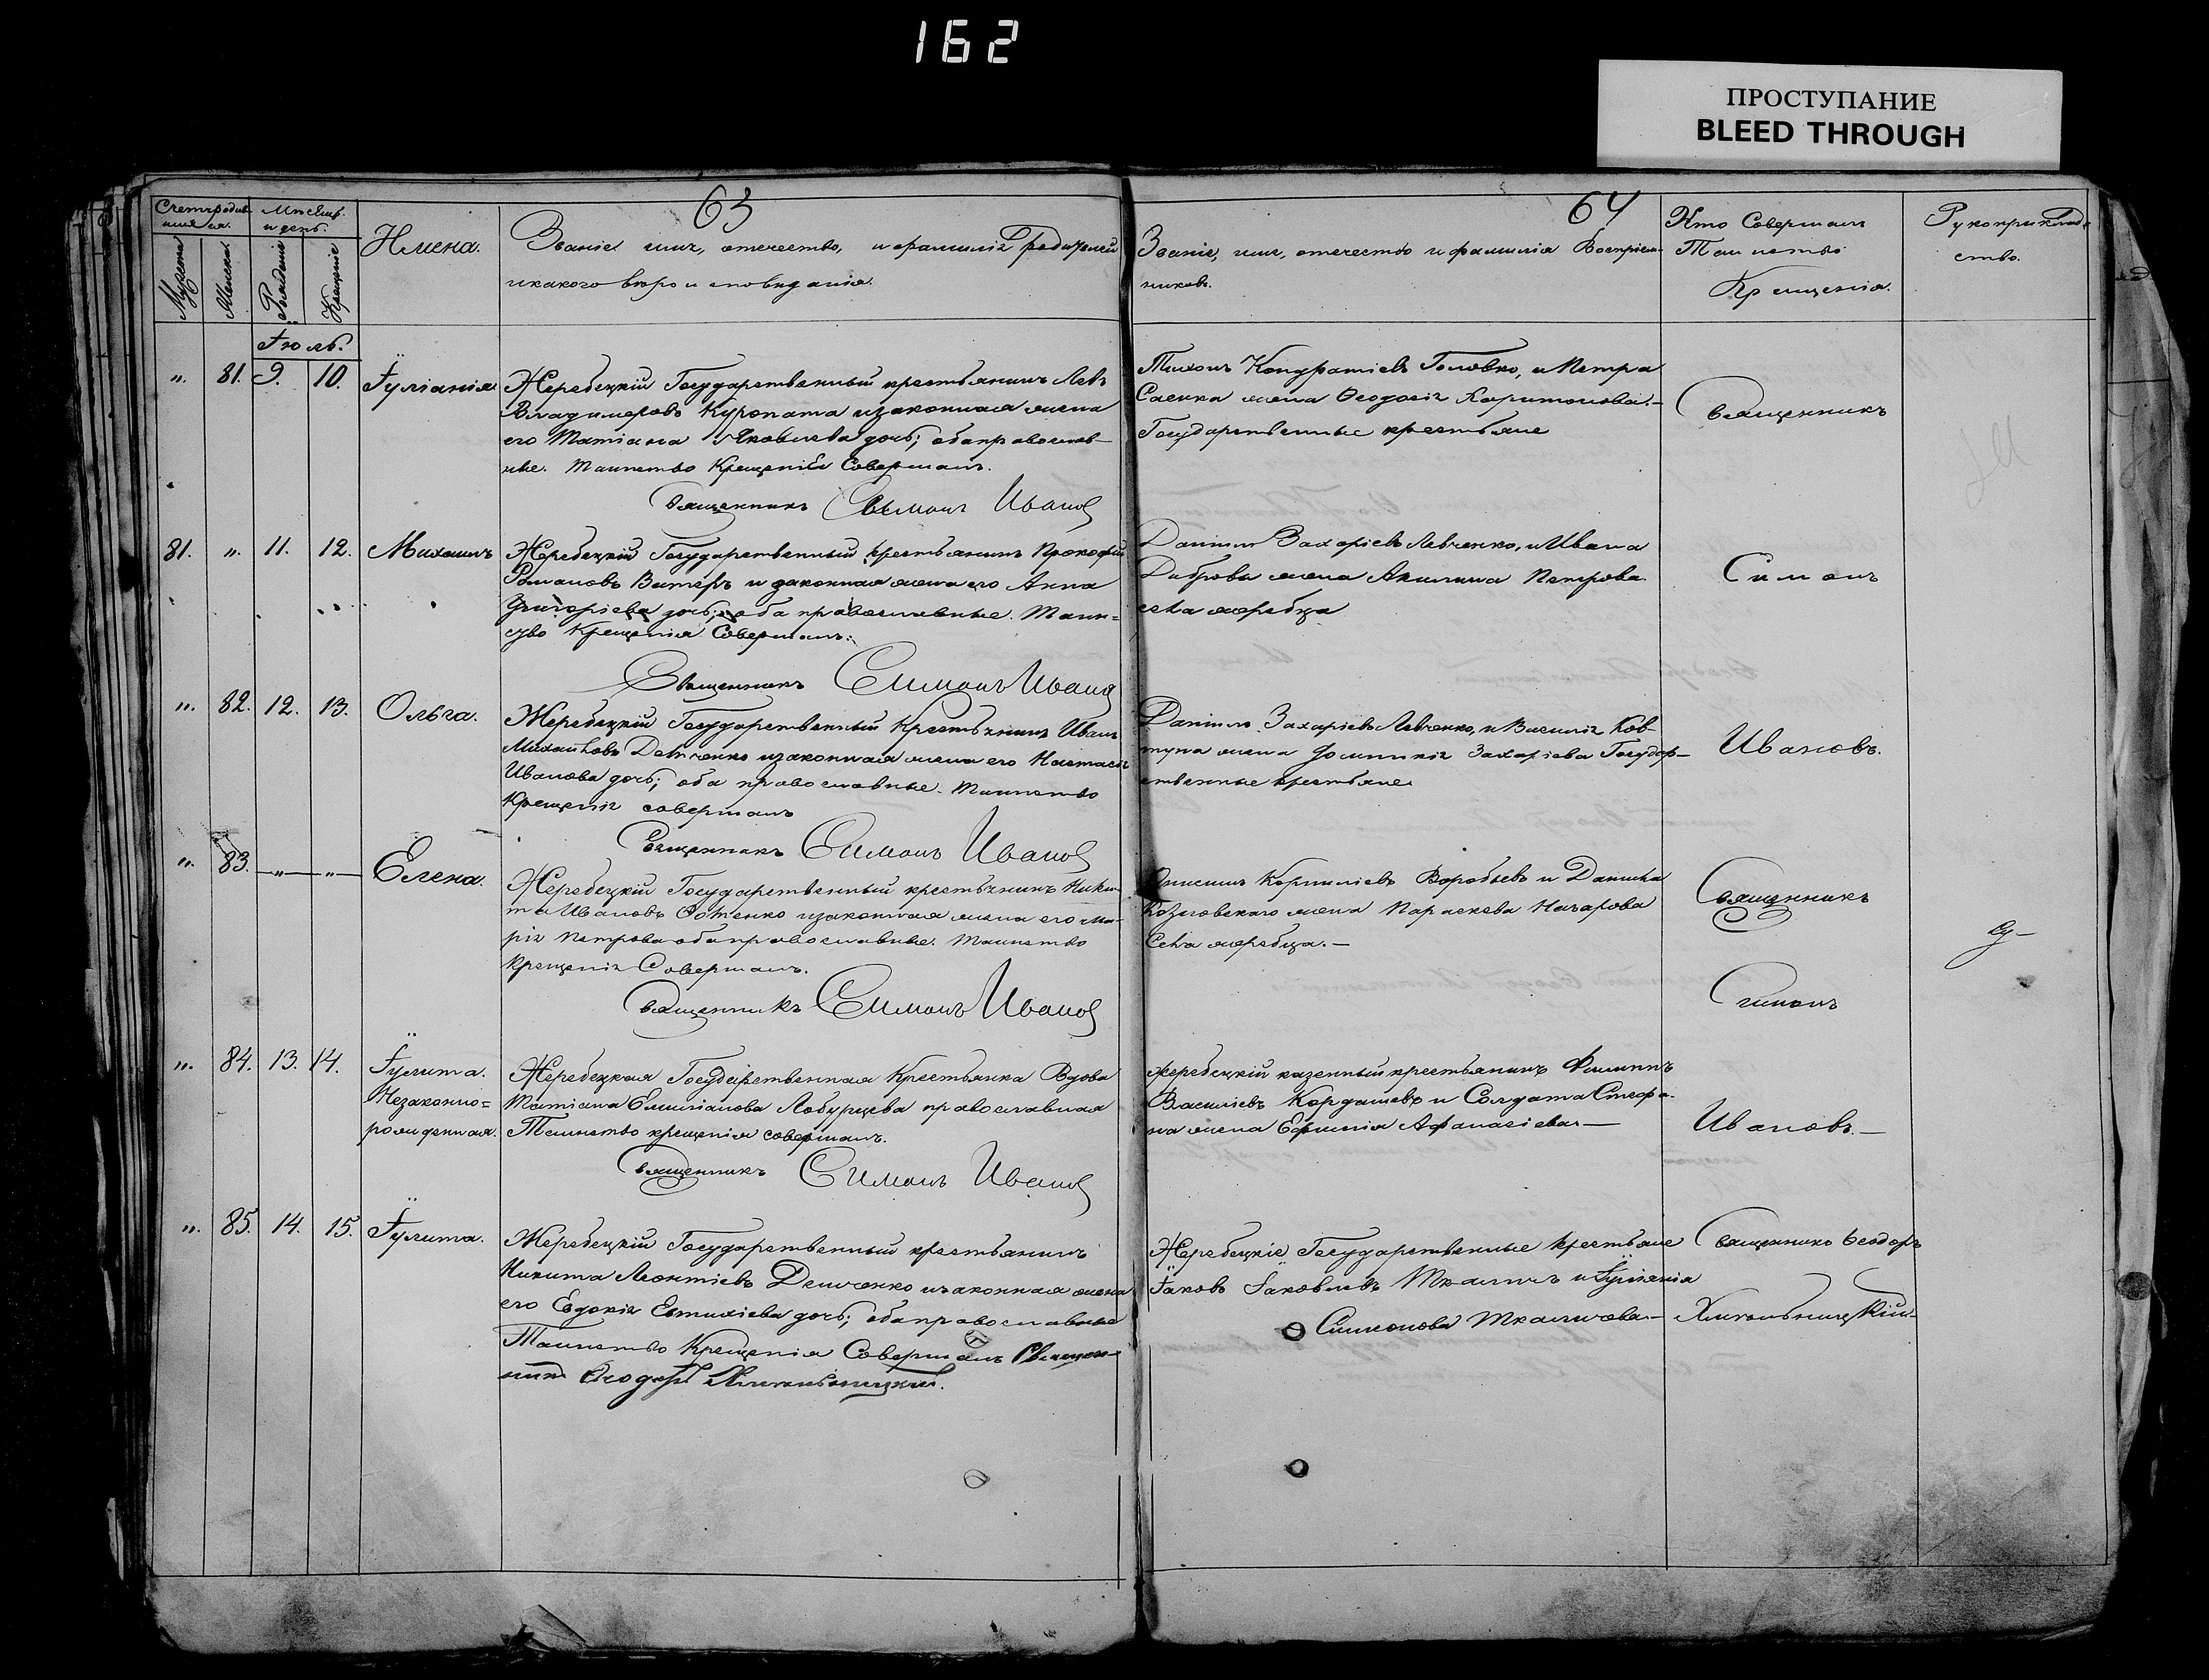 162
ПРОСТУПАНИЕ
BLEED THROUGH
63
64
Счетъ родив-
шихся.
Мѣсяцъ
и день.
Мужеска
Женска
Рожденія
Крещеніе
Имена.
Званіе имя, отечество, и фамилія Родителей
и какого вѣроисповѣданія.
Званіе, имя, отечество и фамилія Воспріем-
никовъ.
Кто Совершалъ
Таинство
Крещенія.
Рукоприклад-
ство.
Іюль.
"
81.
9.
10.
Іуліанія
Жеребецкій Государственный крестьянинъ Левъ
Владимеровъ Куропата и законная жена
его Татіана Яковлева дочь; оба православ-
ные. Таинство Крещенія Совершалъ.
Священникъ Симонъ Иванов
Тихонъ Кондратіевъ Головко, и Петра
Саенка жена Ѳеодосія Харитонова.—
Государственные крестьяне
Священникъ
81.
".
11.
12.
Михаилъ
Жеребецкій Государственный крестьянинъ Прокофій
Романовъ Витеръ и законная жена его Анна
Григоріева дочь; оба православные. Таин=
ство Крещенія Совершалъ.
Священникъ Симонъ Иванов
Даніилъ Захаріевъ Левченко, и Ивана
Диброва жена Акилина Петрова
села жеребца
Симонъ
".
82.
12.
13.
Ольга.
Жеребецкій Государственный Крестьянинъ Иванъ
Михайловъ Детченко и законная жена его Настасія
Иванова дочь; оба православные. Таинство
Крещенія совершалъ
Священникъ Симонъ Иванов
Даніилъ Захаріевъ Левченко, и Василія Ков-
туна жена Домникія Захаріева Государ-
ственные крестьяне
Ивановъ.
".
83.
—"—"—
Елена.
Жеребецкій Государственный крестьянинъ Ники-
та Ивановъ и законная жена его Ма-
рія Петрова оба православные. Таинство
Крещенія Совершалъ.
Священникъ Симонъ Иванов
Онисимъ Корниліевъ Воробьевъ и Данила
Козловскаго жена Параскева Назарова
Села жеребца.—
Священникъ
Симонъ
".
84.
13.
14.
Іулита.
Незаконно=
рожденная.
Жеребецкая Государственная Крестьянка Вдова
Татіана Емиліанова Лобурцева православная
Таинство крещенія совершалъ.
Священникъ Симонъ Иванов
жеребецкій казенный крестьянинъ Филиппъ
Василіевъ Кордашевъ и Солдата Стефа-
на жена Ефимія Афанасіева—
Ивановъ.—
".
85.
14.
15.
Іулита.
Жеребецкій Государственный крестьянинъ
Никита Леонтіевъ Демченко и законная жена
его Евдокія Евтихіева дочь; оба православные
Таинство Крещенія Совершалъ Священ-
никъ Ѳеодоръ Хмельницкій.
Жеребецкіе Государственные крестьяне
Іаковъ Іаковлевъ Ткаличъ и Іуліанія
Симонова Ткаличева—
Священникъ Ѳеодоръ
Хмельницкій.